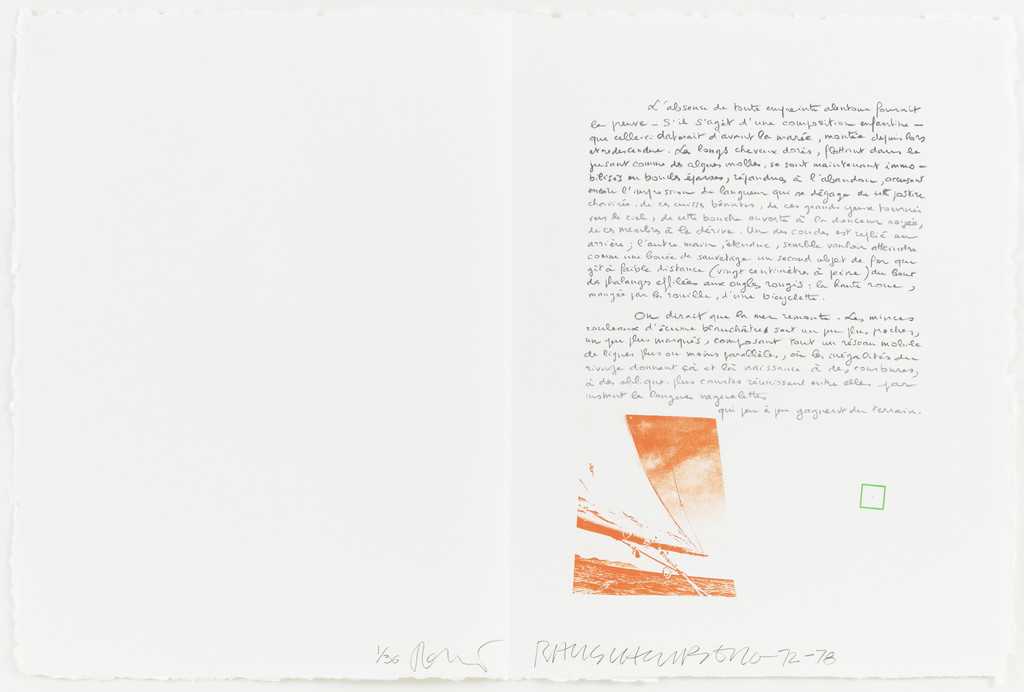 L'absence de toute empreinte alentour fournit
la preuve — S'il s'agit d'une composition enfantine —
que celle-ci daterait d'avant la marée, montée depuis lors
et redescendue. Les longs cheveux dorés, flottant dans le
jusant comme des algues molles, se sont maintenant immo-
bilisés en boucles éparses, répandues à l'abandon, accusant
encore l'impression de langueur qui se dégage de cette posture
chavirée, de ces cuisses béantes, de ces grands yeux tournés
vers le ciel, de cette bouche ouverte à la douceur noyée,
de ces membres à la dérive. Un des coudes est replié en
arrière ; l'autre main, étendue, semble vouloir atteindre
comme une bouée de sauvetage un second objet de fer qui
gît à faible distance (vingt centimètres à peine) du bout
des phalanges effilées aux ongles rougis : la haute roue,
mangée par la rouille, d'une bicyclette.
On dirait que la mer remonte. Les minces
rouleaux d'écume blanchâtres sont un peu plus proches,
un peu plus marqués, composant tout un réseau mobile
de lignes plus ou moins parallèles, où les inégalités du
rivage donnent çà et là naissance à des courbures,
à des obliques plus courtes réunissant entre elles par
instant les longues vaguelettes
qui peu à peu gagnent du terrain.
1/36 RAUSCHENBERG 72-78